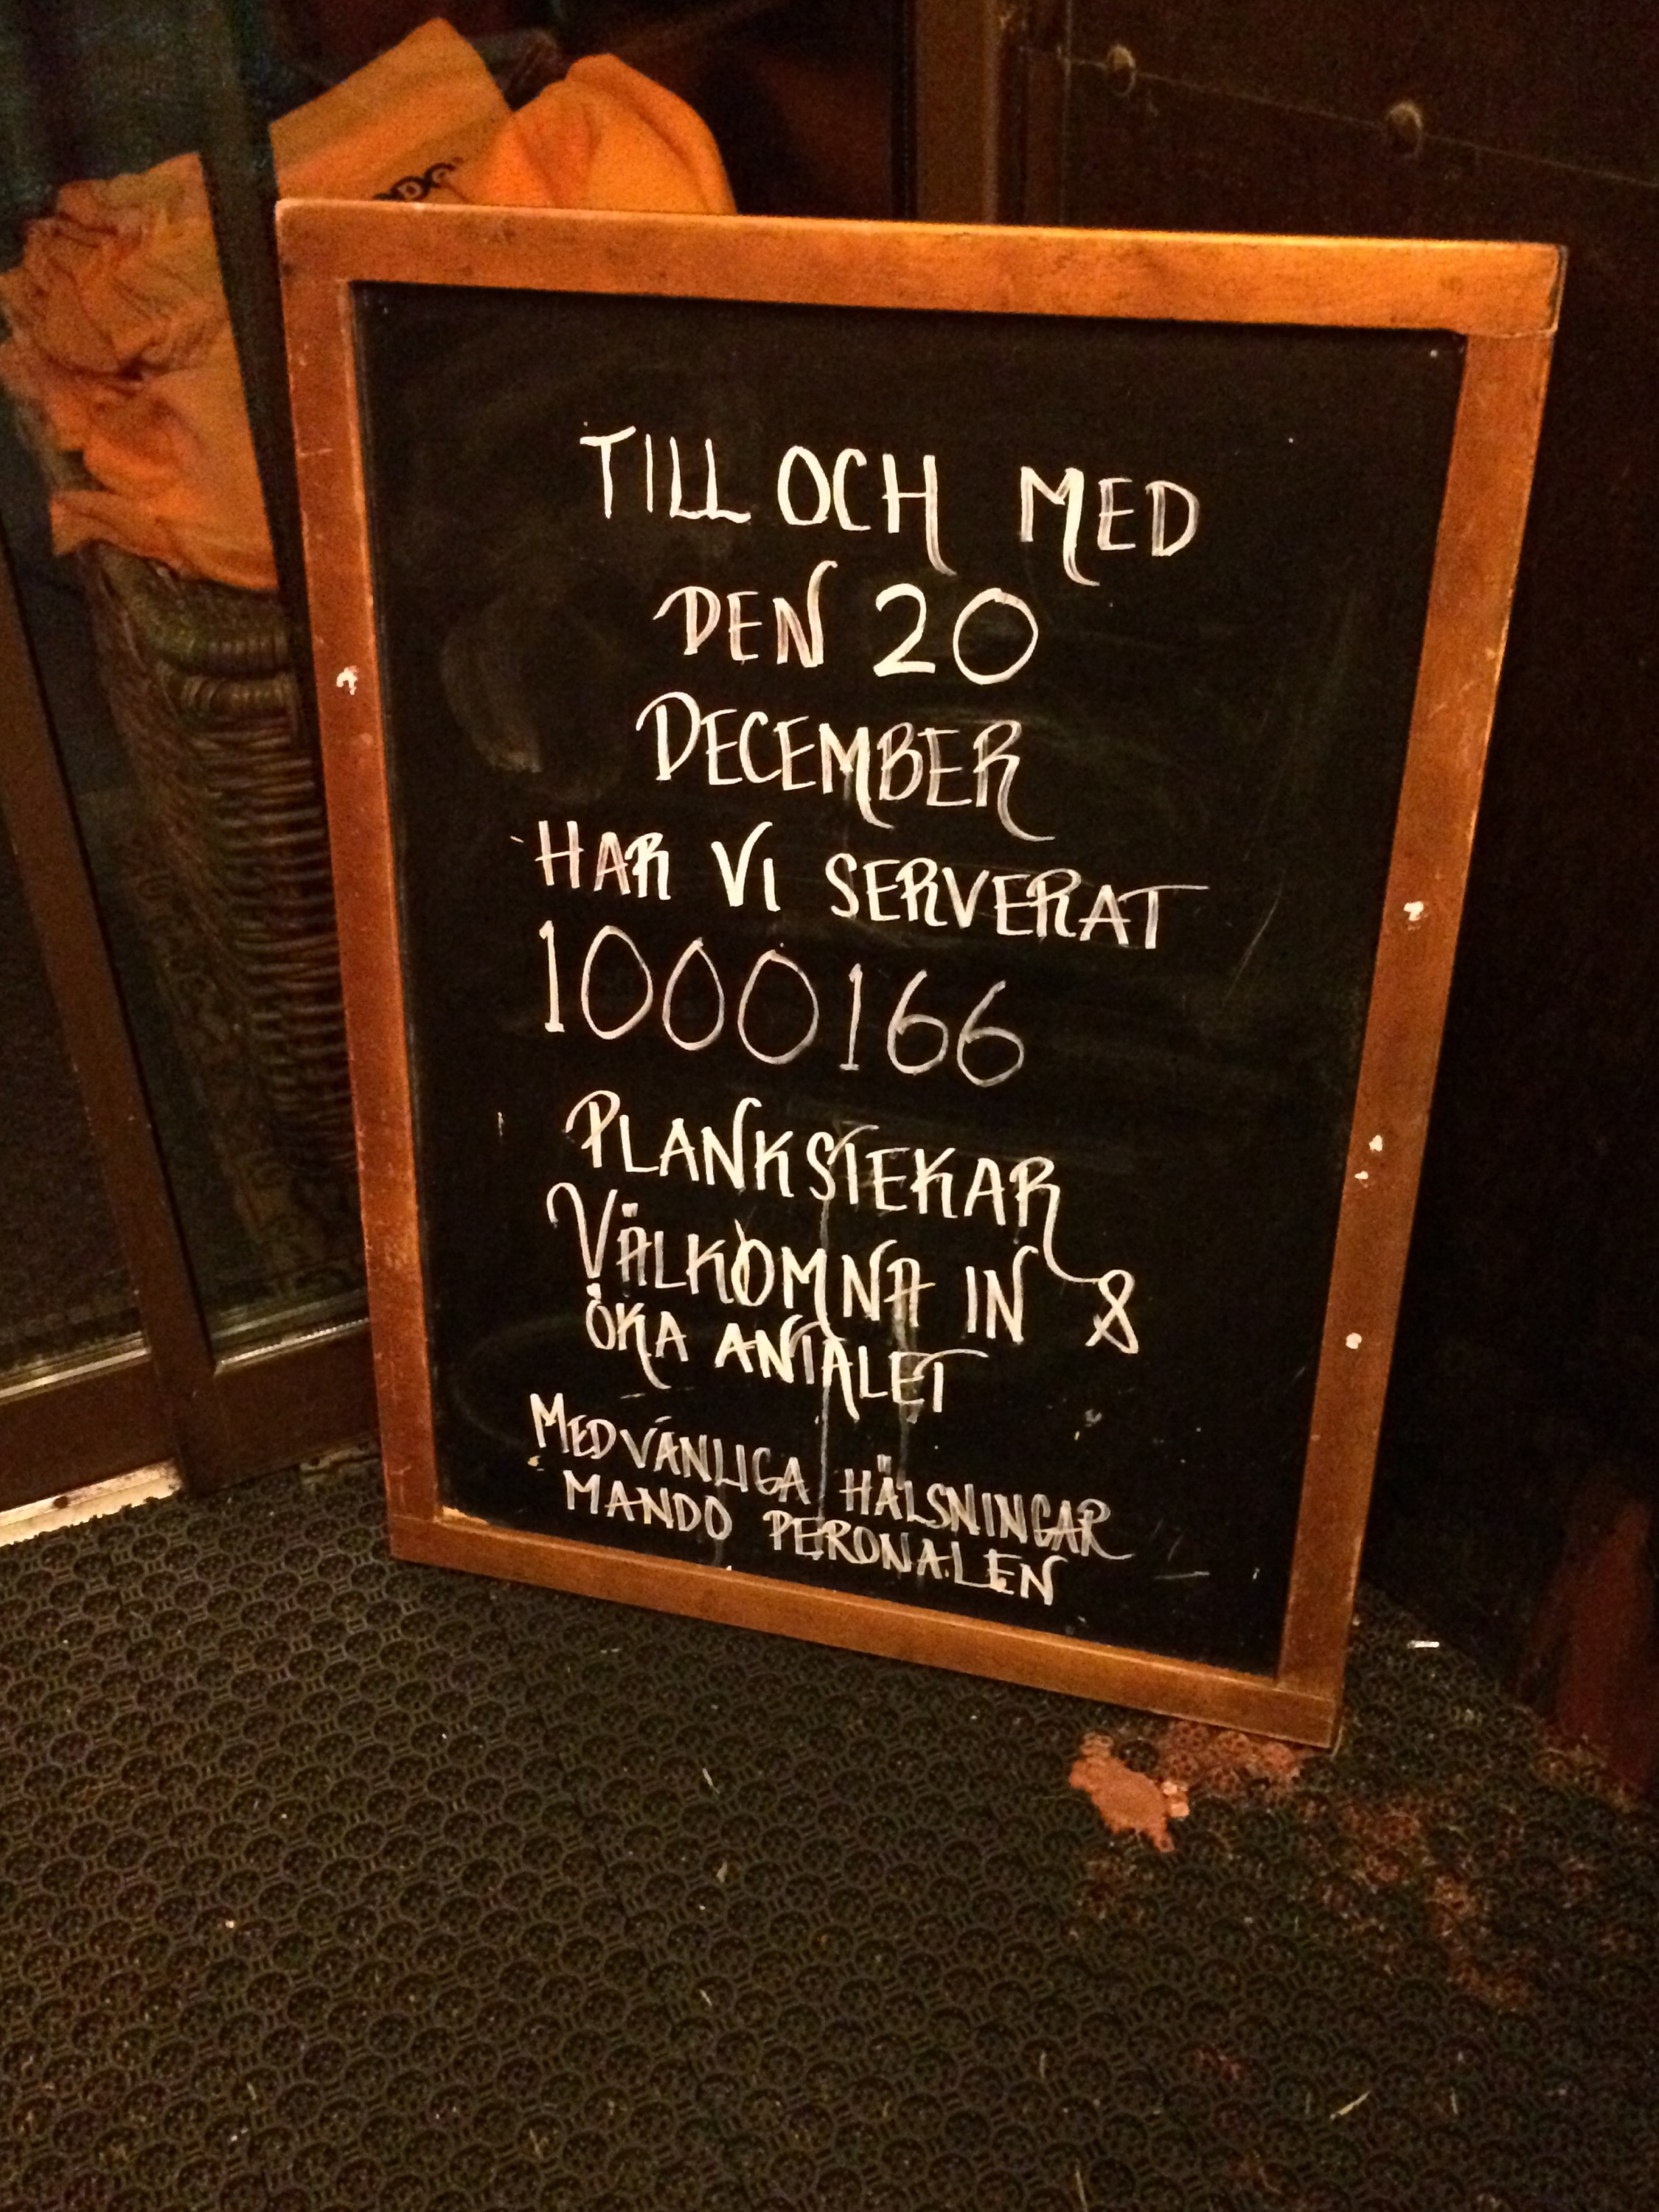 TILL OCH MED
DEN 20
DECEMBER
HAR VI SERVERAT
1000166
PLANKSTEKAR
VÄLKOMNA IN &
ÖKA ANTALET
MED VÄNLIGA HÄLSNINGAR
MANDO PERONALEN